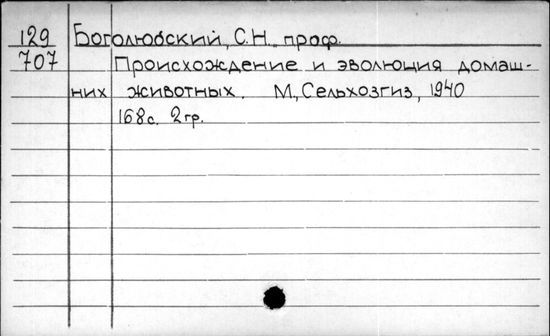 129 Боголюбский, С.Н. проф.
707 Происхождение и эволюция домаш-
них животных. М, Сельхозгиз, 1940
168с. 2гр.